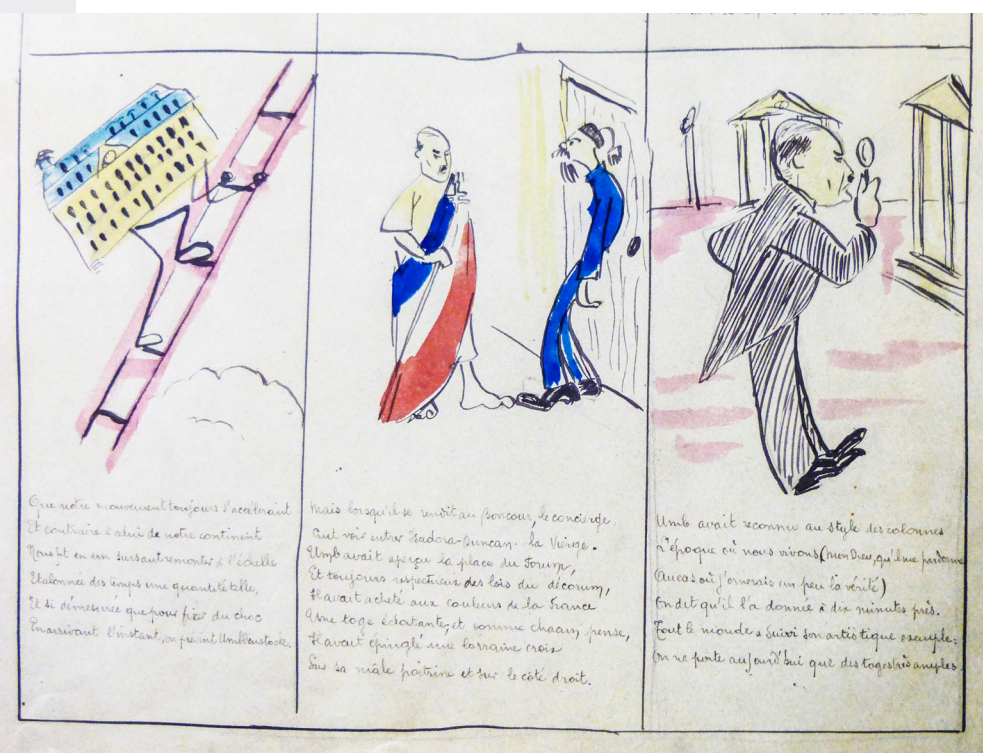 Que notre mouvement toujours s'accélérant
Et contraire à celui de notre continent
Nous fit en un sursaut remonter à l'échelle
Etalonnée des temps une quantité telle,
Et si démesurée que pour fixer du choc
En arrivant l'instant, on prévint Umblenstock.
Mais lorsqu'il se rendit au Boncour, le concierge,
Crut voir entrer Isadora-Duncan-la Vierge.
Umb avait aperçu la place du Forum,
Et toujours respectueux des lois du décorum,
Il avait acheté aux couleurs de la France
Une toge éclatante, et comme chacun pense,
Il avait épinglé une lorraine croix
Sur sa mâle poitrine et sur le côté droit.
Umb avait reconnu au style des colonnes
L'époque où nous vivons (mon Dieu, qu'il me pardonne
Au cas où j'ornerais un peu la vérité)
On dit qu'il l'a donnée à dix minutes près.
Tout le monde a suivi son artistique exemple:
On ne porte aujourd'hui que des toges très amples.